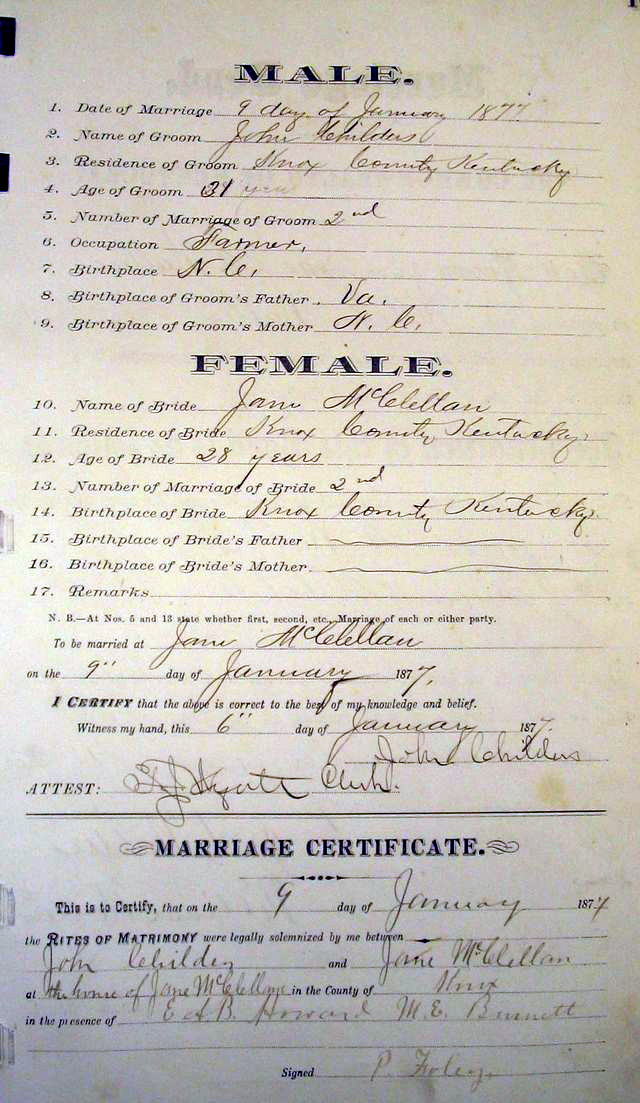 MALE.
1. Date of Marriage 9 day of January 1877
2. Name of Groom John Childers
3. Residence of Groom Knox County Kentucky
4. Age of Groom 31 years
5. Number of Marriage of Groom 2nd
6. Occupation Farmer,
7. Birthplace N. C.
8. Birthplace of Groom's Father. Va.
9. Birthplace of Groom's Mother N. C.
FEMALE.
10. Name of Bride Jane McClellan
11. Residence of Bride Knox County Kentucky.
12. Age of Bride 28 years
13. Number of Marriage of Bride 2nd
14. Birthplace of Bride Knox County Kentucky.
15. Birthplace of Bride's Father
16. Birthplace of Bride's Mother
17. Remarks
N. B.—At Nos. 5 and 13 state whether first, second, etc., Marriage of each or either party.
To be married at Jane McClellan
on the 9" day of January 1877.
I CERTIFY that the above is correct to the best of my knowledge and belief.
Witness my hand, this 6" day of January 1877.
John Childers
ATTEST: Clerk.
MARRIAGE CERTIFICATE.
This is to Certify, that on the 9 day of January 1877
the RITES OF MATRIMONY were legally solemnized by me between
John Childers and Jane McClellan
at the house of Jane McClellan in the County of Knox
in the presence of B. Howard M. E. Burnett
Signed P. Foley.